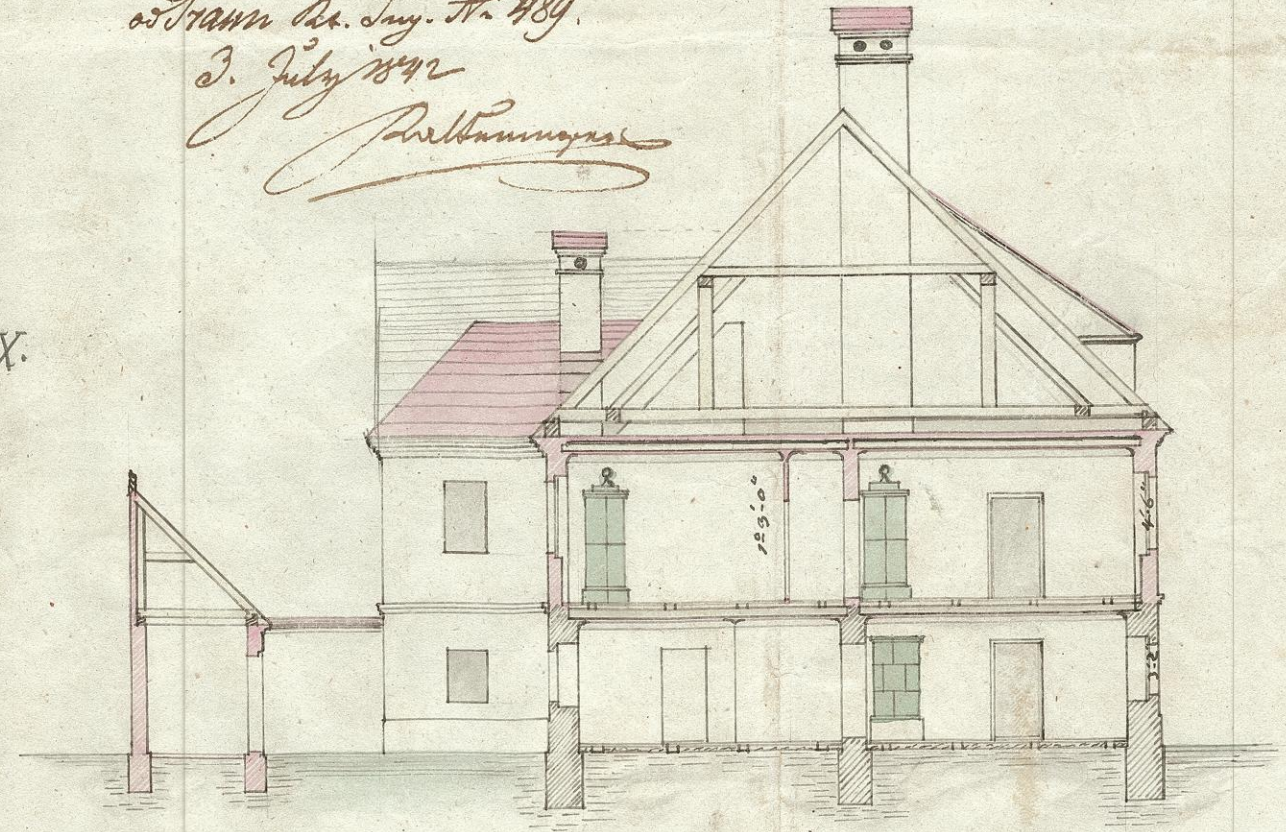 ad Traun Rt. Ing. Nr 489.
3. July 1842
X.
1° 3'-0"
4'-6"
3'-2"